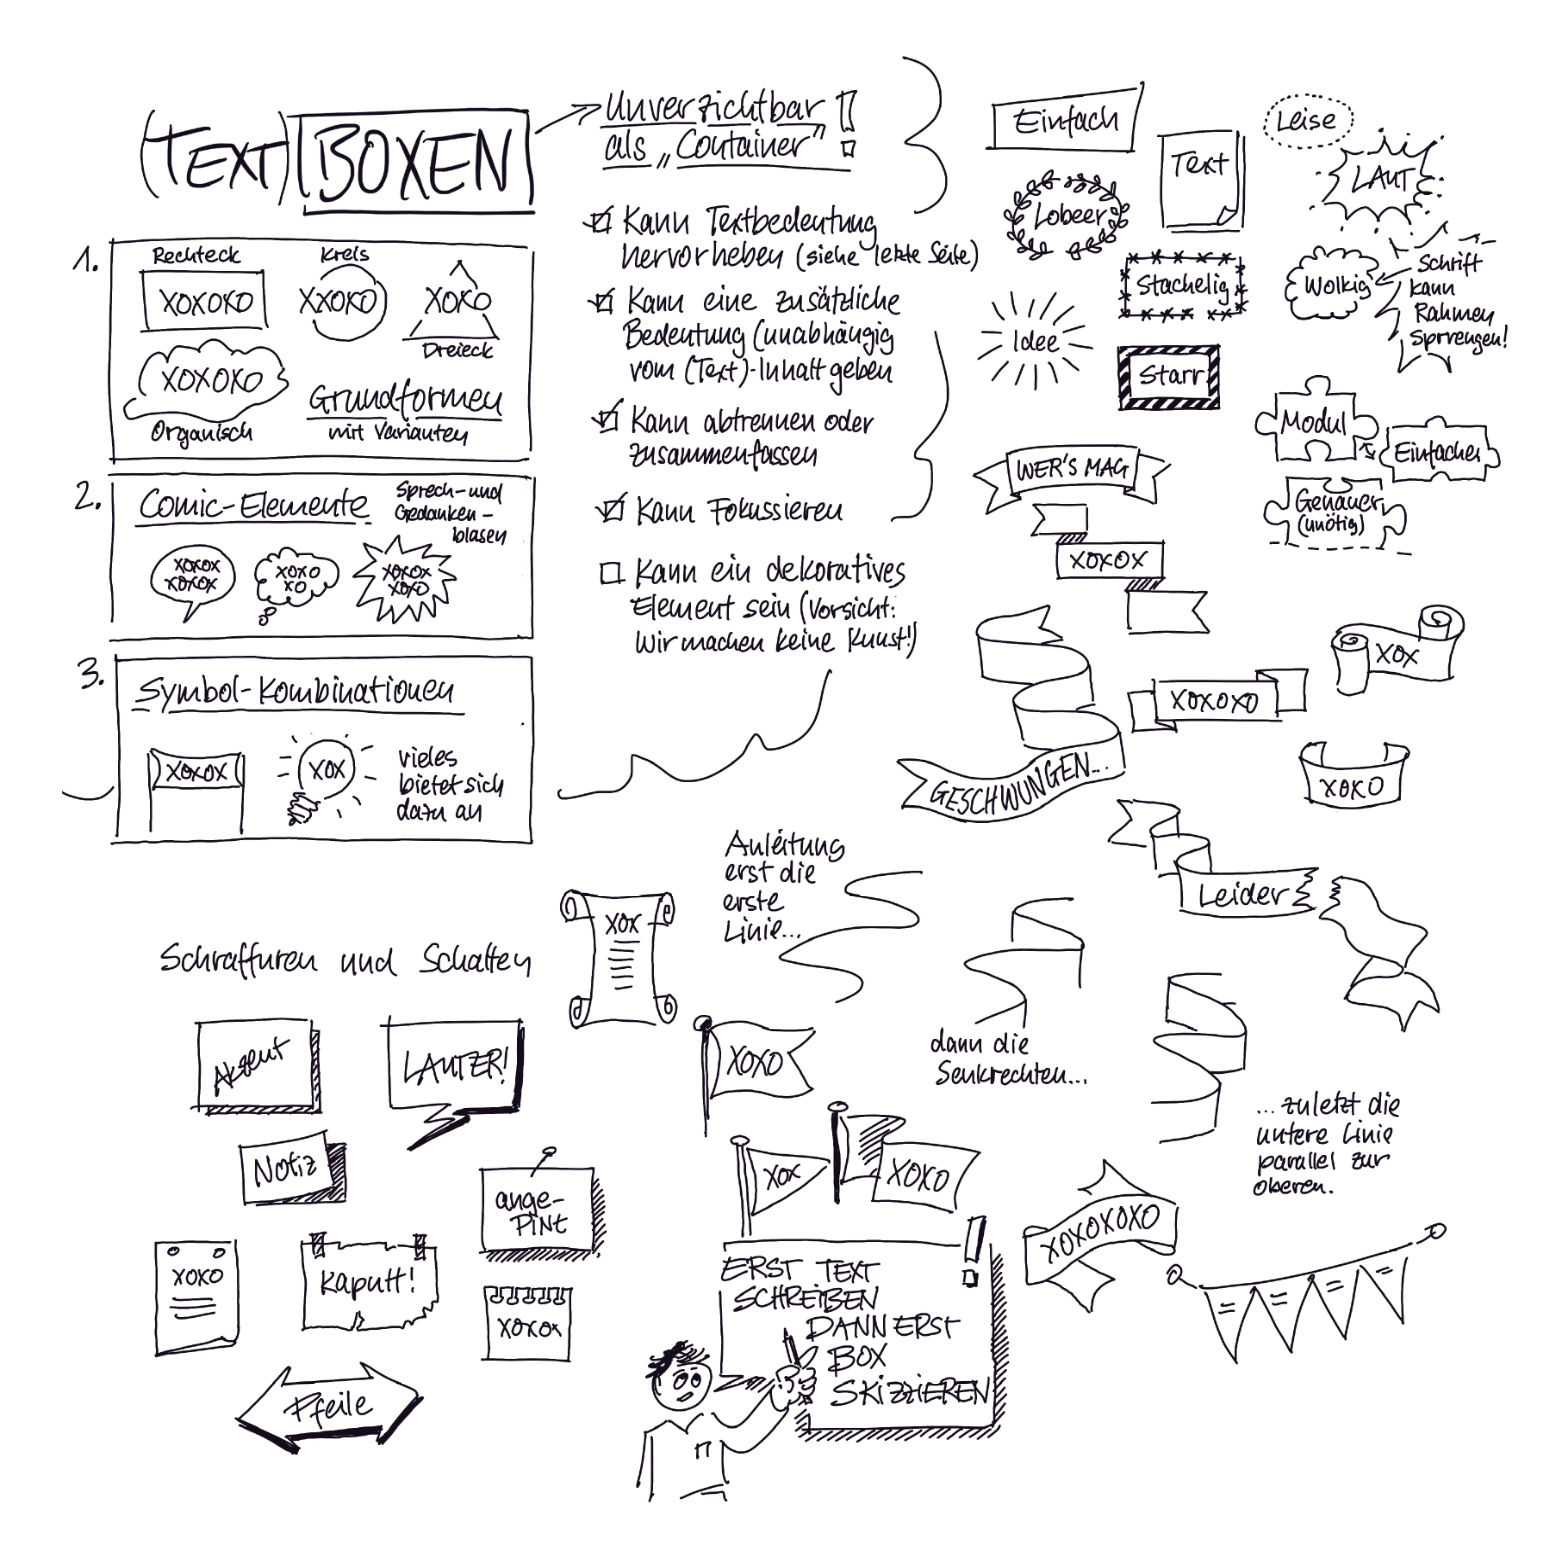 (TEXT) BOXEN
1.
Rechteck
XOXOXO
Kreis
XXOXO
XOXO
Dreieck
XOXOXO
Organisch
Grundformen
mit Varianten
2.
Comic-Elemente
Sprech- und
Gedanken-
blasen
XOXOX
XOXOX
XOXO
XO
XOXOX
XOXO
3.
Symbol-Kombinationen
XOXOX
XOX
vieles
bietet sich
dazu an
Unverzichtbar
als „Container" !
☑ Kann Textbedeutung
hervorheben (siehe letzte Seite)
☑ Kann eine zusätzliche
Bedeutung (unabhängig
vom (Text)-Inhalt geben
☑ Kann abtrennen oder
zusammenfassen
☑ Kann Fokussieren
☐ Kann ein dekoratives
Element sein (Vorsicht:
Wir machen keine Kunst!)
Einfach
Text
Leise
LAUT
Lobeer
Stachelig
Wolkig
Schrift
kann
Rahmen
Sprrengen!
Idee
Starr
Modul
Einfacher
Genauer
(unötig)
WER'S MAG
XOXOX
XOX
XOXOXO
GESCHWUNGEN...
XOXO
Leider
Anleitung
erst die
erste
Linie...
dann die
Senkrechten...
...zuletzt die
untere Linie
parallel zur
oberen.
XOX
Schraffuren und Schatten
Akzent
LAUTER!
Notiz
ange-
PINt
XOXO
Kaputt!
XOXOX
Pfeile
XOXO
XOX
XOXO
XOXOXOXO
ERST TEXT
SCHREIBEN
DANN ERST
BOX
SKIZZIEREN
!